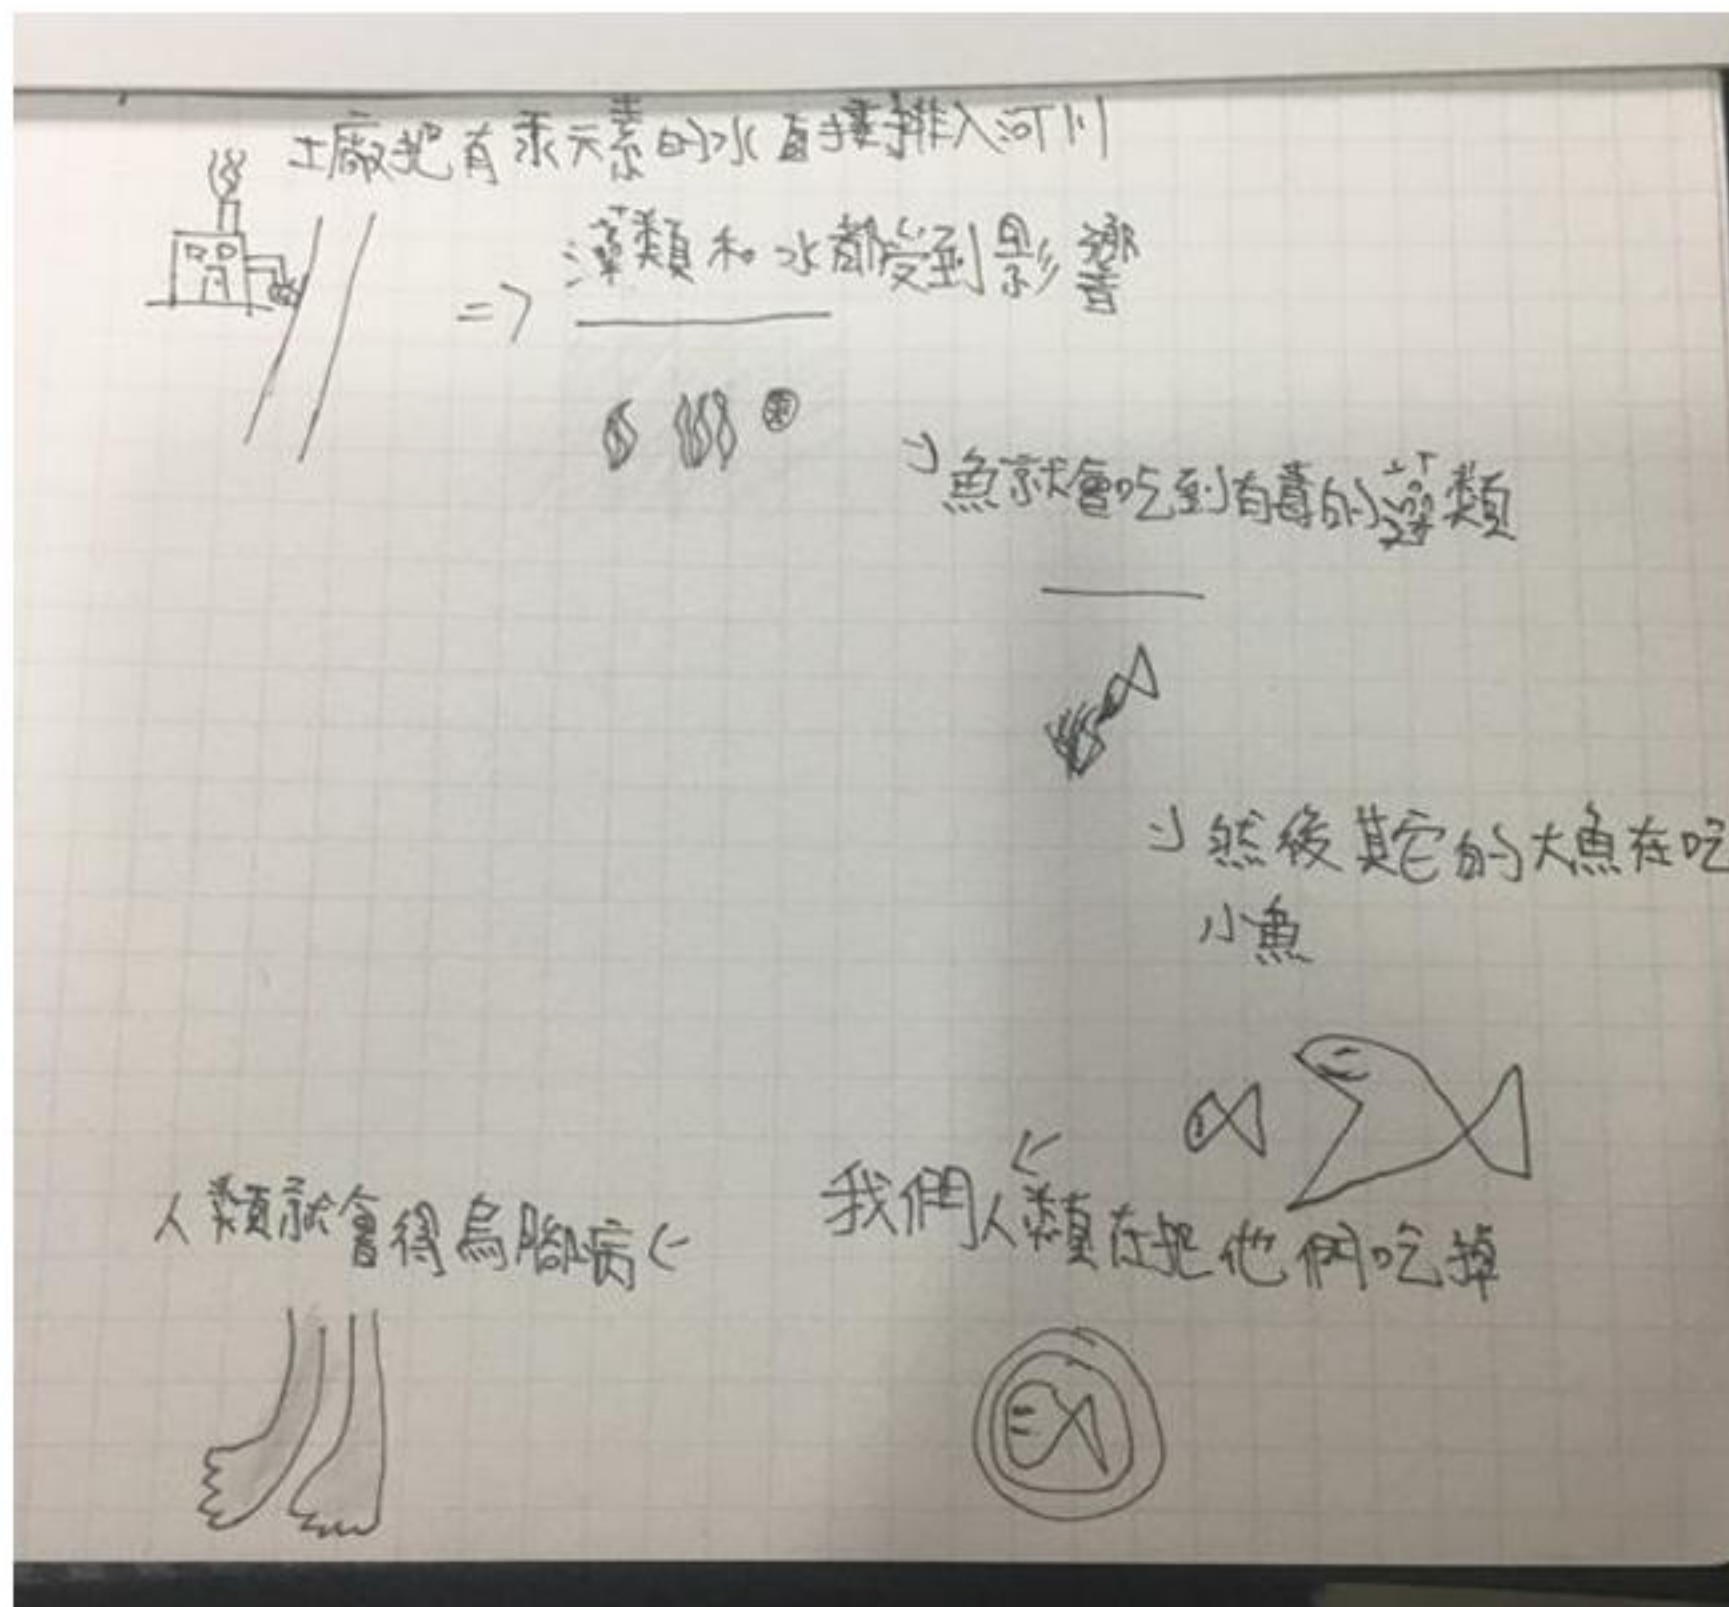 工廠把有汞元素的水直接排入河川
=> 藻類和水都受到影響
汞
魚就會吃到有毒的藻類
然後其它的大魚在吃
小魚
我們人類在把他們吃掉
人類就會得烏腳病